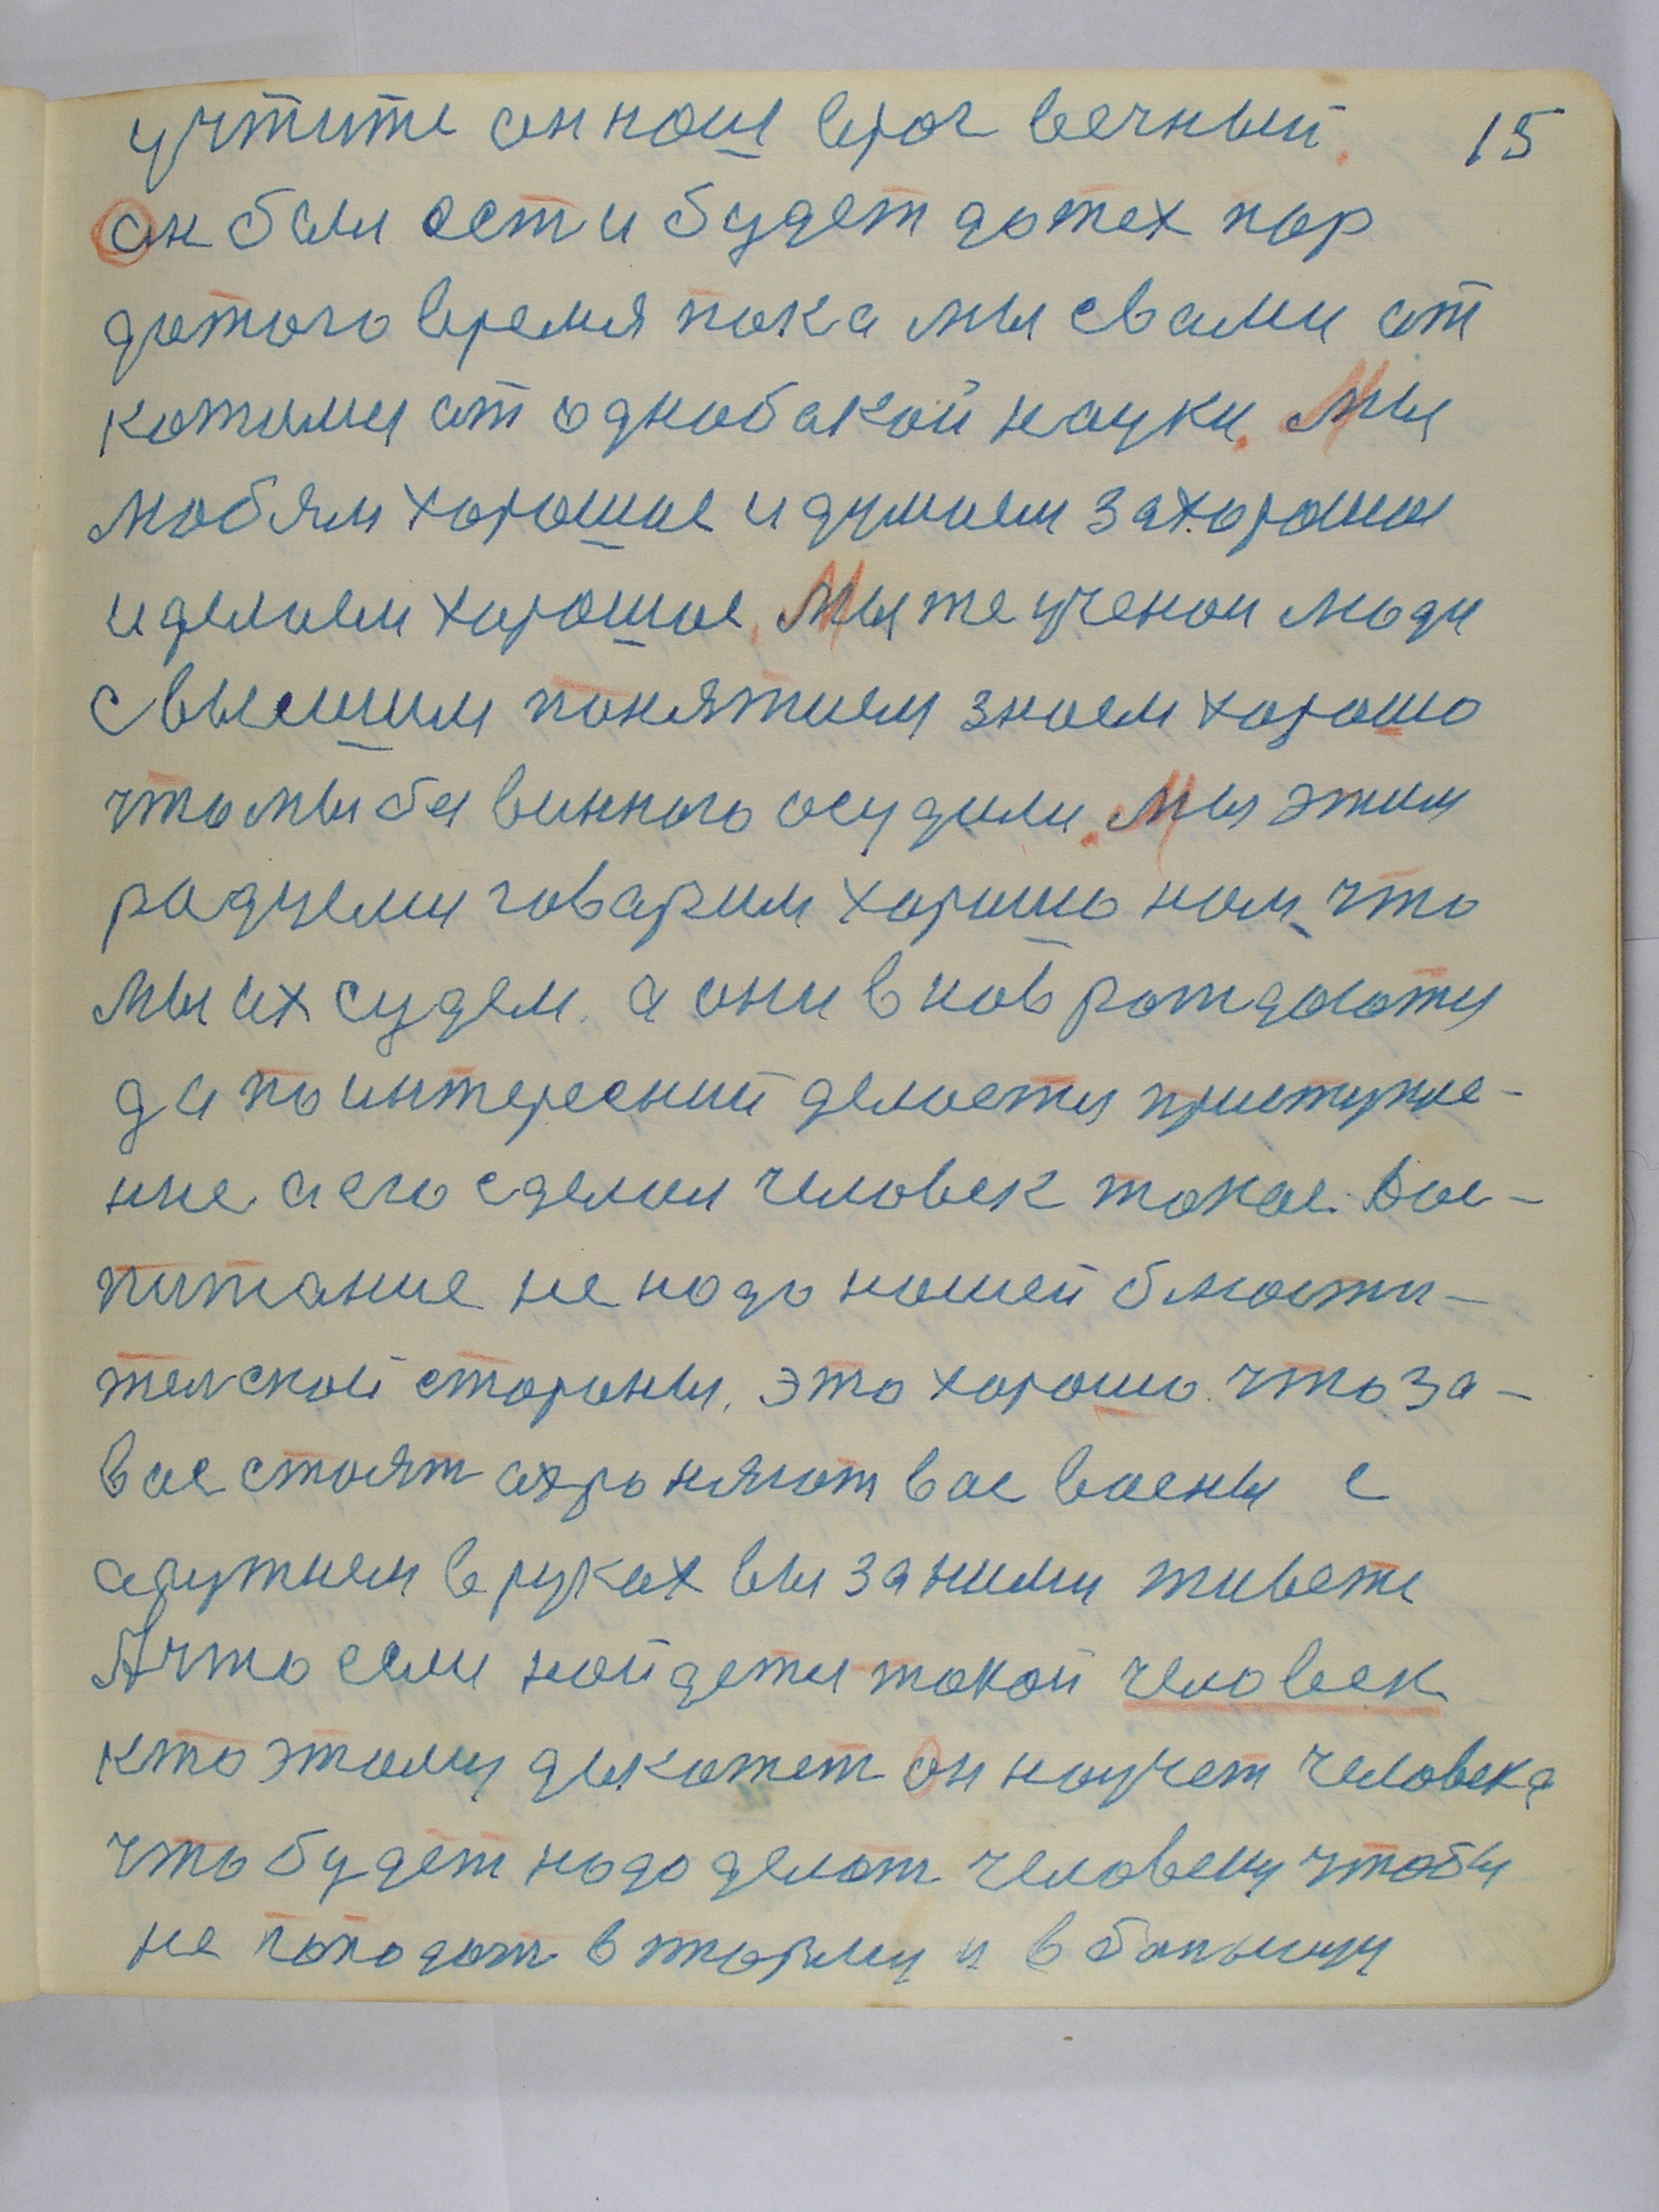 учтите он наш враг вечный. 15
Он был ест и будет дотех пор
дотого время пока мы свами от
котимся от однобакой науки. Мы
любям хорошее и думаем захорошое
и делаем хорошое. Мы же ученои люди
с высшим понятием знаем хорошо
что мы бевинного осудили. Мы этим
радуемся говарим хорошо нам что
мы их судем. а они внов рождаются
да по интересний делается приступле-
ние. а его сделал человек такое. Вос-
питание не надо нашей блюсти-
телской стораны. это хорошо. что за-
вас стоят охроняют вас воены с
аружием в руках вы за ними живете
А что если найдется такой человек
кто этому докажет он научет человека
что будет надо делат человеку чтобы
не попадат в тюрму и в болницу